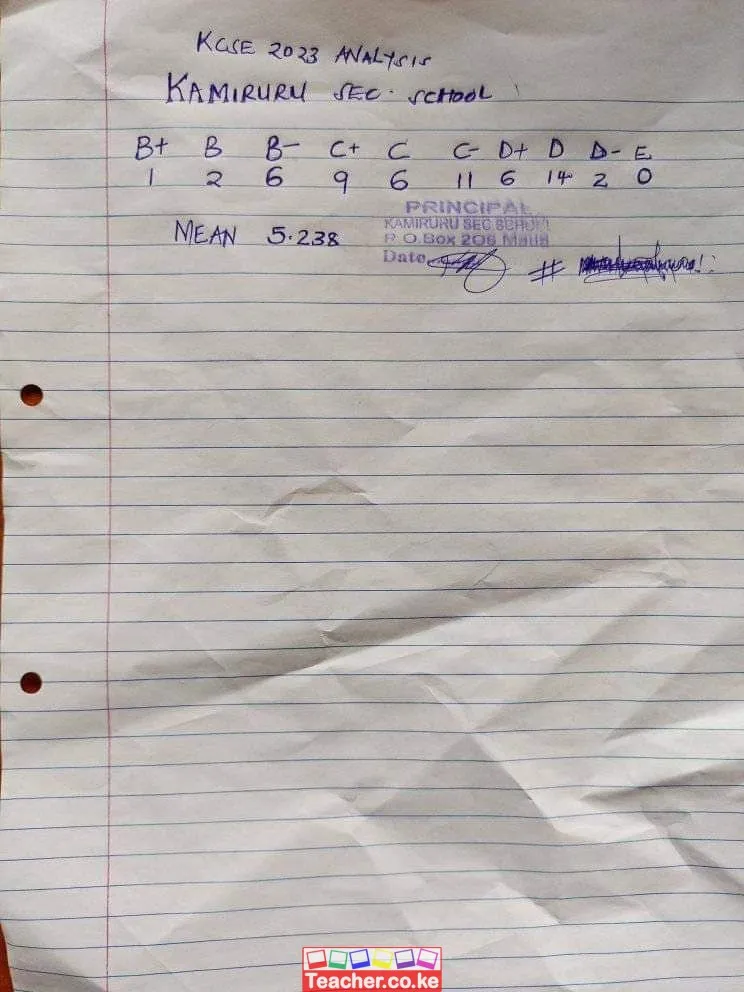 KCSE 2023 ANALYSIS
KAMIRURU SEC. SCHOOL
B+ B B- C+ C C- D+ D D- E
1 2 6 9 6 11 6 14 2 0
MEAN 5.238
PRINCIPAL
KAMIRURU SEC SCHOOL
P O.Box 206 Maua
Date
#
Teacher.co.ke